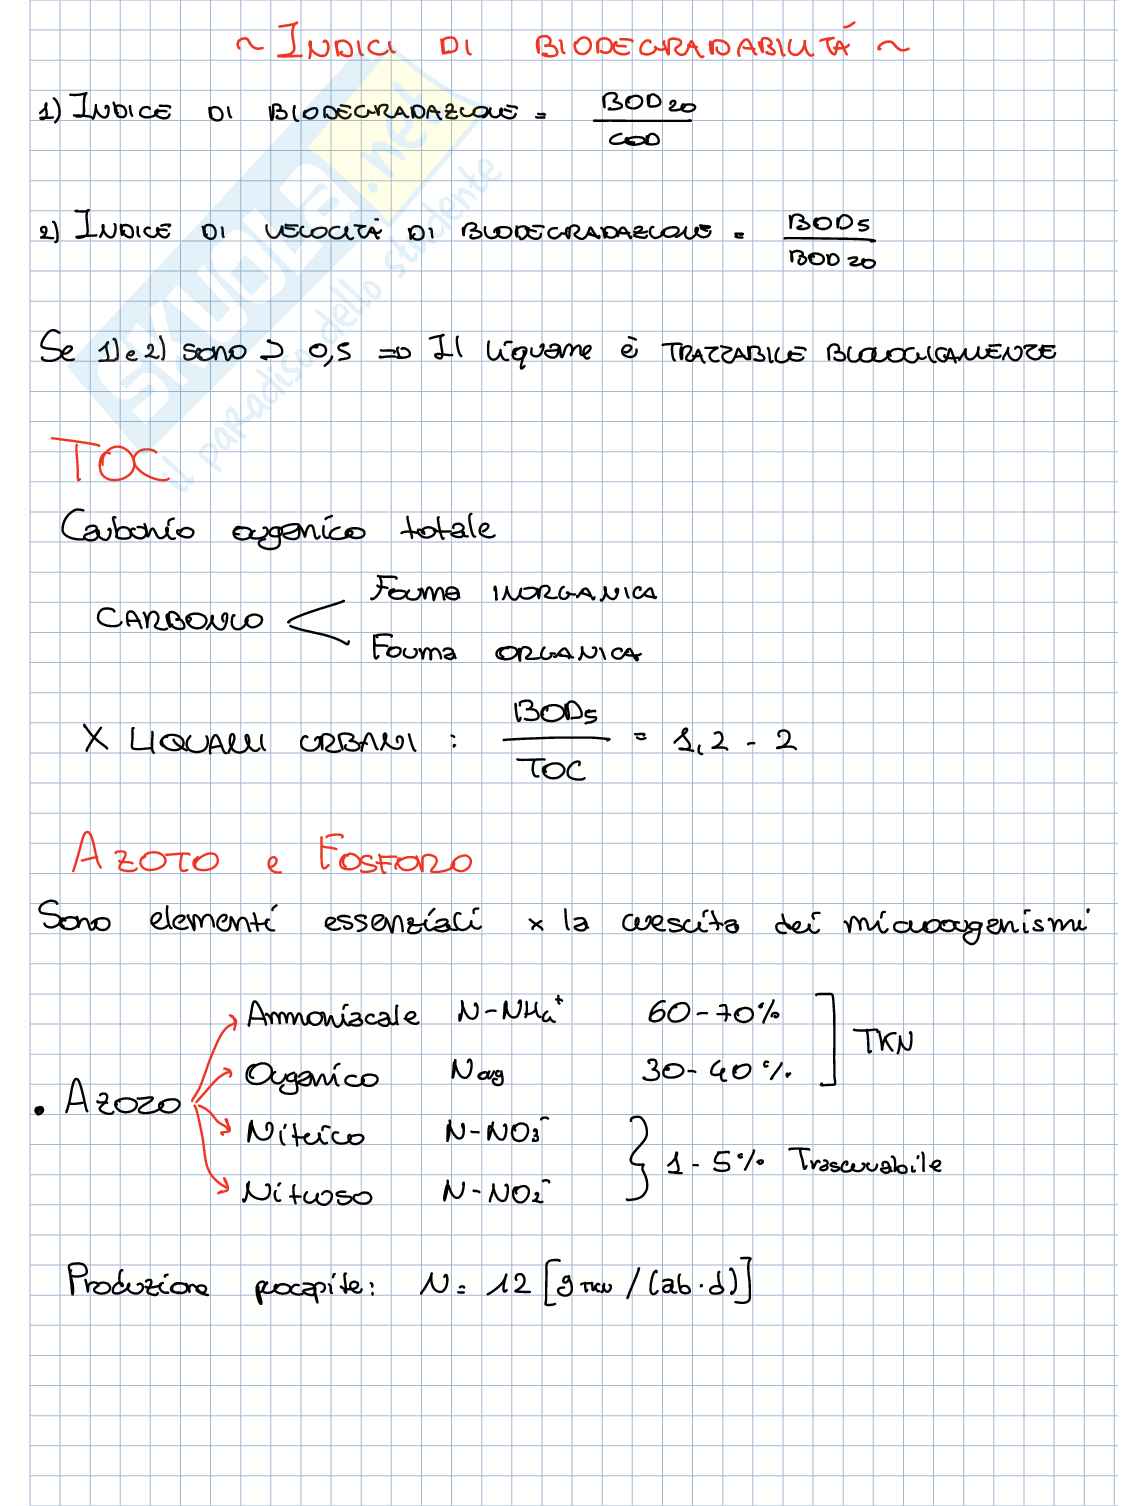 ~ INDICI DI BIODEGRADABILITÁ ~
1) INDICE DI BIODEGRADAZIONE = BOD20 / COD
2) INDICE DI VELOCITÁ DI BIODEGRADAZIONE = BOD5 / BOD20
Se 1) e 2) sono > 0,5 => Il liquame è TRATTABILE BIOLOGICAMENTE
TOC
Carbonio organico totale
CARBONIO < Forma INORGANICA
Forma ORGANICA
X LIQUAMI URBANI : BOD5 / TOC = 1,2 - 2
AZOTO e FOSFORO
Sono elementi essenziali x la crescita dei microorganismi
Ammoniacale N-NH4+ 60-70%
Organico Norg 30-40%
] TKN
. AZOTO
Nitrico N-NO3-
Nitroso N-NO2-
} 1-5% Trascurabile
Produzione procapite: N = 12 [g TKN / (ab·d)]
SKUOLA.net
il paradiso dello studente